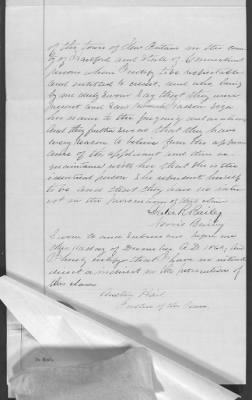 of the town of New Britain in the county
of Hartford and State of Connecticut
persons whom I certify to be respectable
and entitled to credit, and who being
by me duly sworn say that they were
present and saw Hannah Wasson sign
her name to the foregoing declaration
and they further swear that they have
every reason to believe from the appear
ance of the applicant and their ac
quaintance with her that she is the
identical person she represents herself
to be and that they have no inter
est in the prosecution of this claim
Bailey
Norris Bailey
Sworn to and subscribed before me
this day of December A.D. 186 and
I hereby certify that I have no interest
direct or indirect in the prosecution of
this claim
Hart
Justice of the Peace